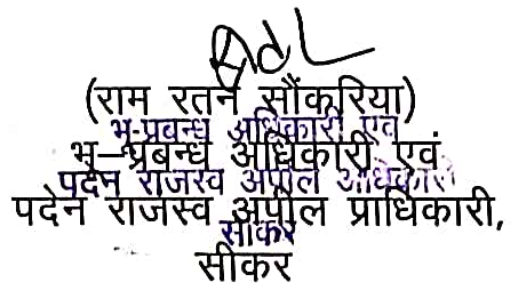 (राम रतन सौंकरिया)
भू-प्रबन्ध अधिकारी एवं
भू–प्रबन्ध अधिकारी एवं
पदेन राजस्व अपील अधिकारी
पदेन राजस्व अपील प्राधिकारी,
सीकर
सीकर